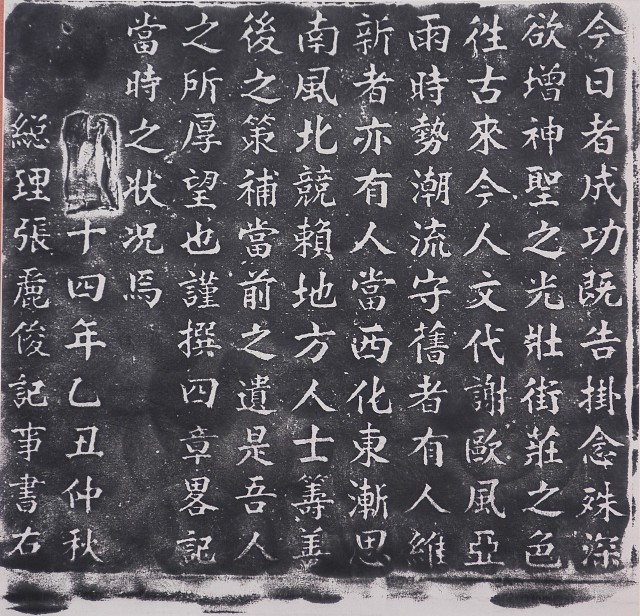 今日者成功既告掛念殊深
欲增神聖之光壯街莊之色
徃古來今人文代謝歐風亞
雨時勢潮流守舊者有人維
新者亦有人當西化東漸思
南風北競賴地方人士籌善
後之策補當前之遺是吾人
之所厚望也謹撰四章畧記
當時之状况焉
十四年乙丑仲秋
総理張麗俊記事書右